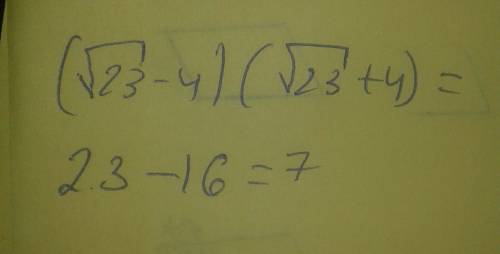 (√23 - 4)(√23 + 4) =
23 - 16 = 7